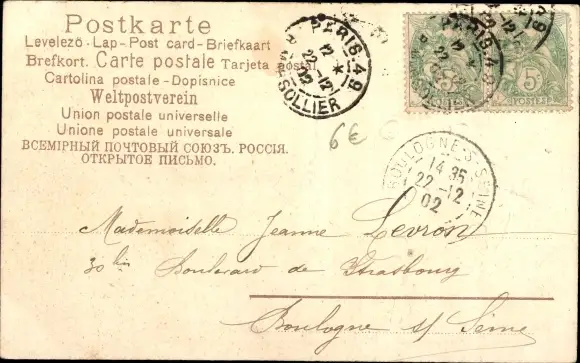 Postkarte
Levelezö-Lap-Post card-Briefkaart
Brefkort. Carte postale Tarjeta postal
Cartolina postale-Dopisnice
Weltpostverein
Union postale universelle
Unione postale universale
ВСЕМІРНЫЙ ПОЧТОВЫЙ СОЮЗЪ. РОССІЯ.
ОТКРЫТОЕ ПИСЬМО.
PARIS-46
12 *
22-12
02
5c
POSTES
6€
BOULOGNE-S-SEINE
14 35
22-12
02
Mademoiselle Jeanne Levron
30 bis Boulevard de Strasbourg
Boulogne s/ Seine